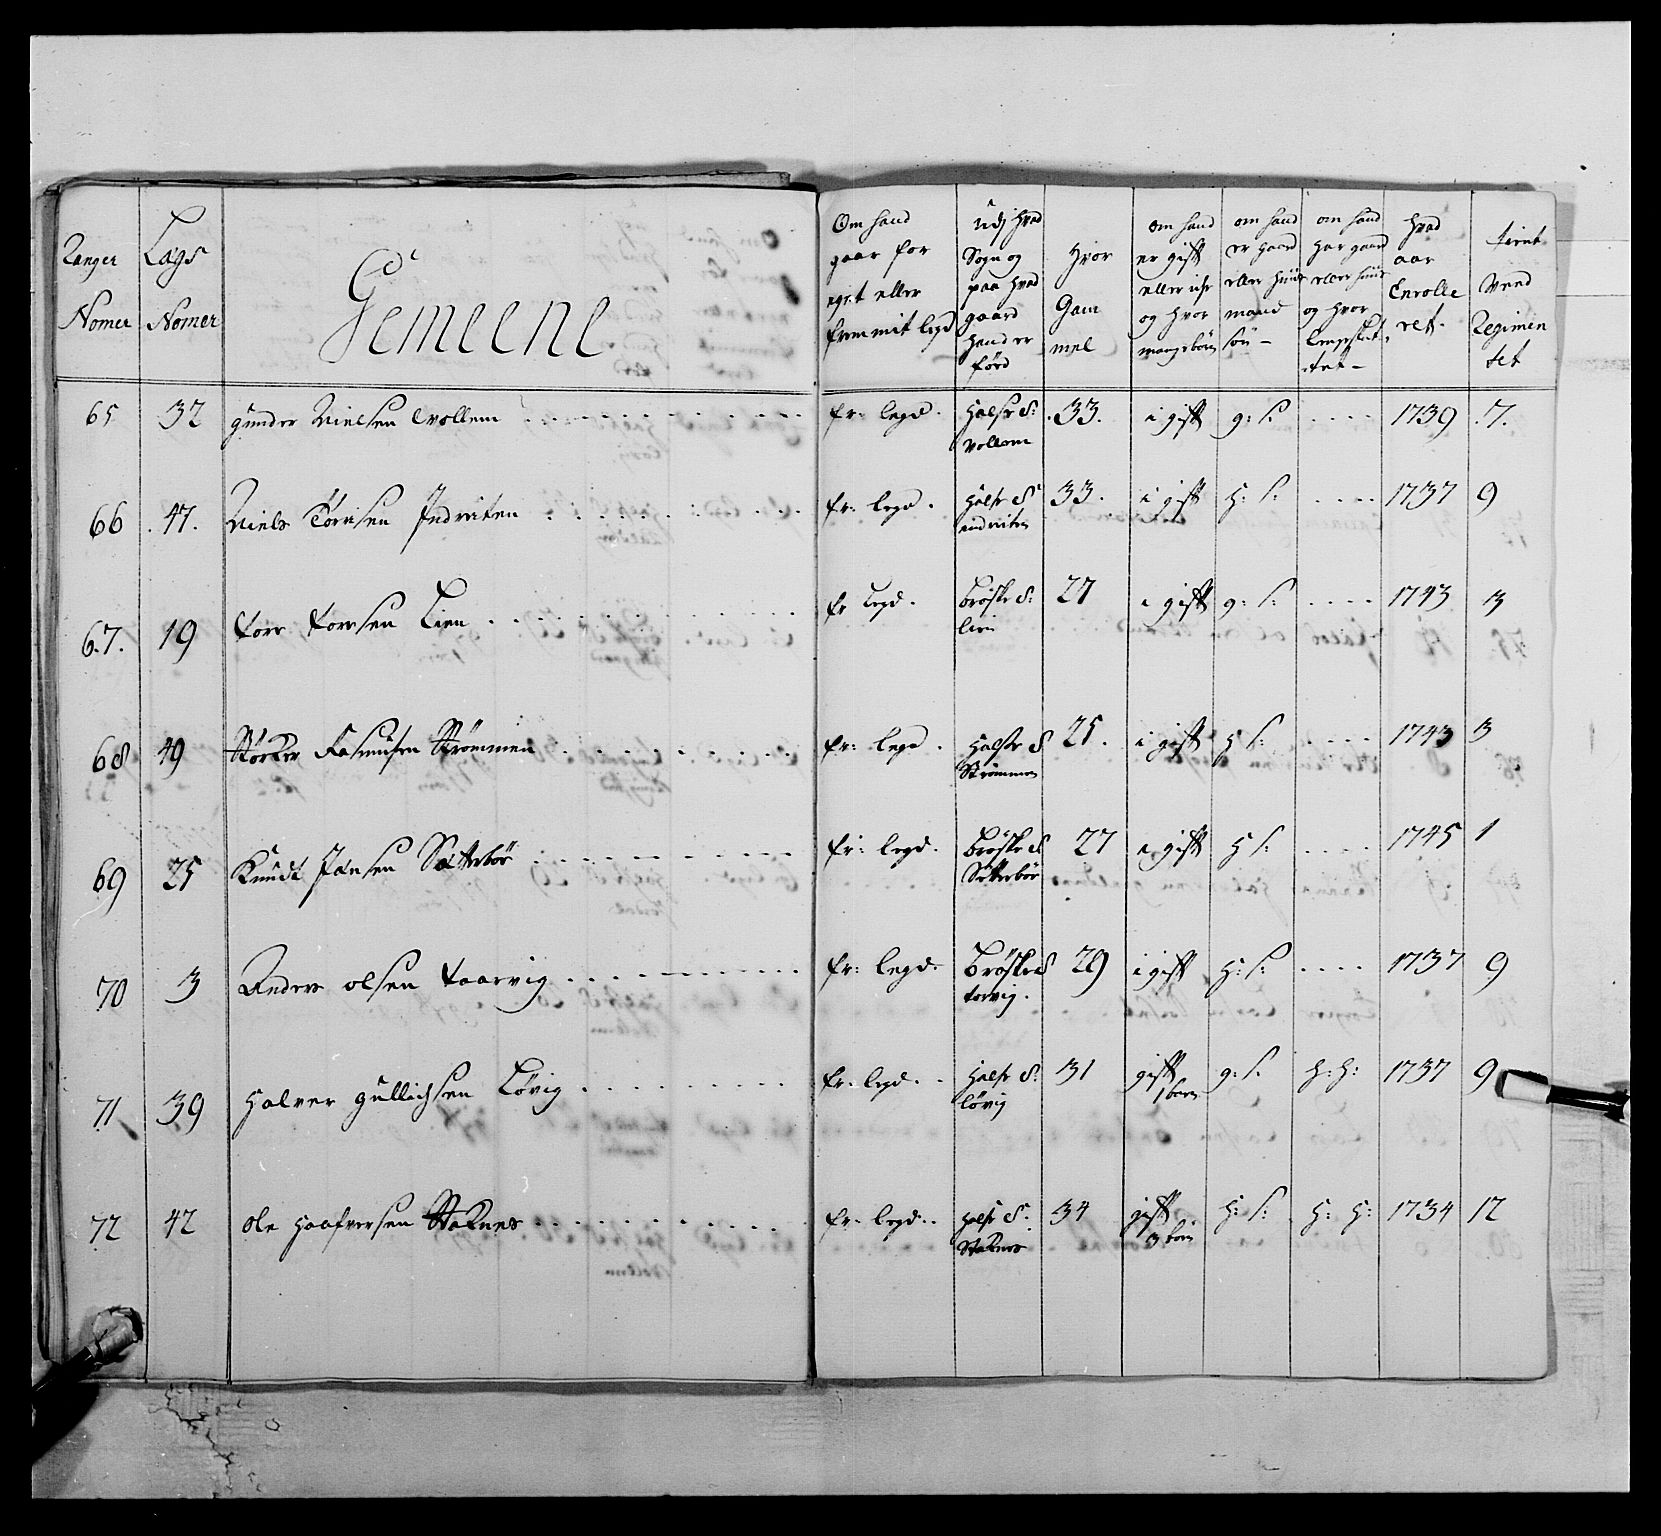 Ranger Nomer
Lags Nomer
Gemeene
Om hand gaar for eget eller fremmit legd
udj hvad Sogn og paa hvad gaard hand er förd
hvor Gam mel
om hand er gift eller icke og hvor mange börn
om hand er gaard eller huus mand sön
om hand har gaard eller huus og hvor
hvad aar Enrolle ret.
tient ved Regimen tet
65 32 gunder Nielsen Wollem fr: legd. Halse S: Vollom 33. i gift g: s: .... 1739 7.
66 47. Niels Törrisen Indreiten fr: legd. Halse S: indreiten 33. i gift H: s: .... 1737 9
67. 19 torr torrsen Lien fr legd. Bröske S: lien 27 i gift g: s: .... 1743 3
68 49 Störker Rasmusen Strömmen fr: legd. Halse S Strömmen 25. i gift H s: .... 1743 3
69 25 Knudt Jansen Sætterbör fr: legd. Bröske S Sætterbör 27 i gift H s: .... 1745 1
70 3 Anders olsen taarvig fr: legd. Bröske S torvig. 29 i gift H: s: .... 1737 9
71 39 Halver gullichsen Lövig fr: legd. Halse S: lövig 31 gift 1 barn g: s: H: H: 1737 9
72 42 ole Haafversen Staknes fr: legd. Halse S. Staknes 34 gift 3 börn H: s: H: H: 1734 12